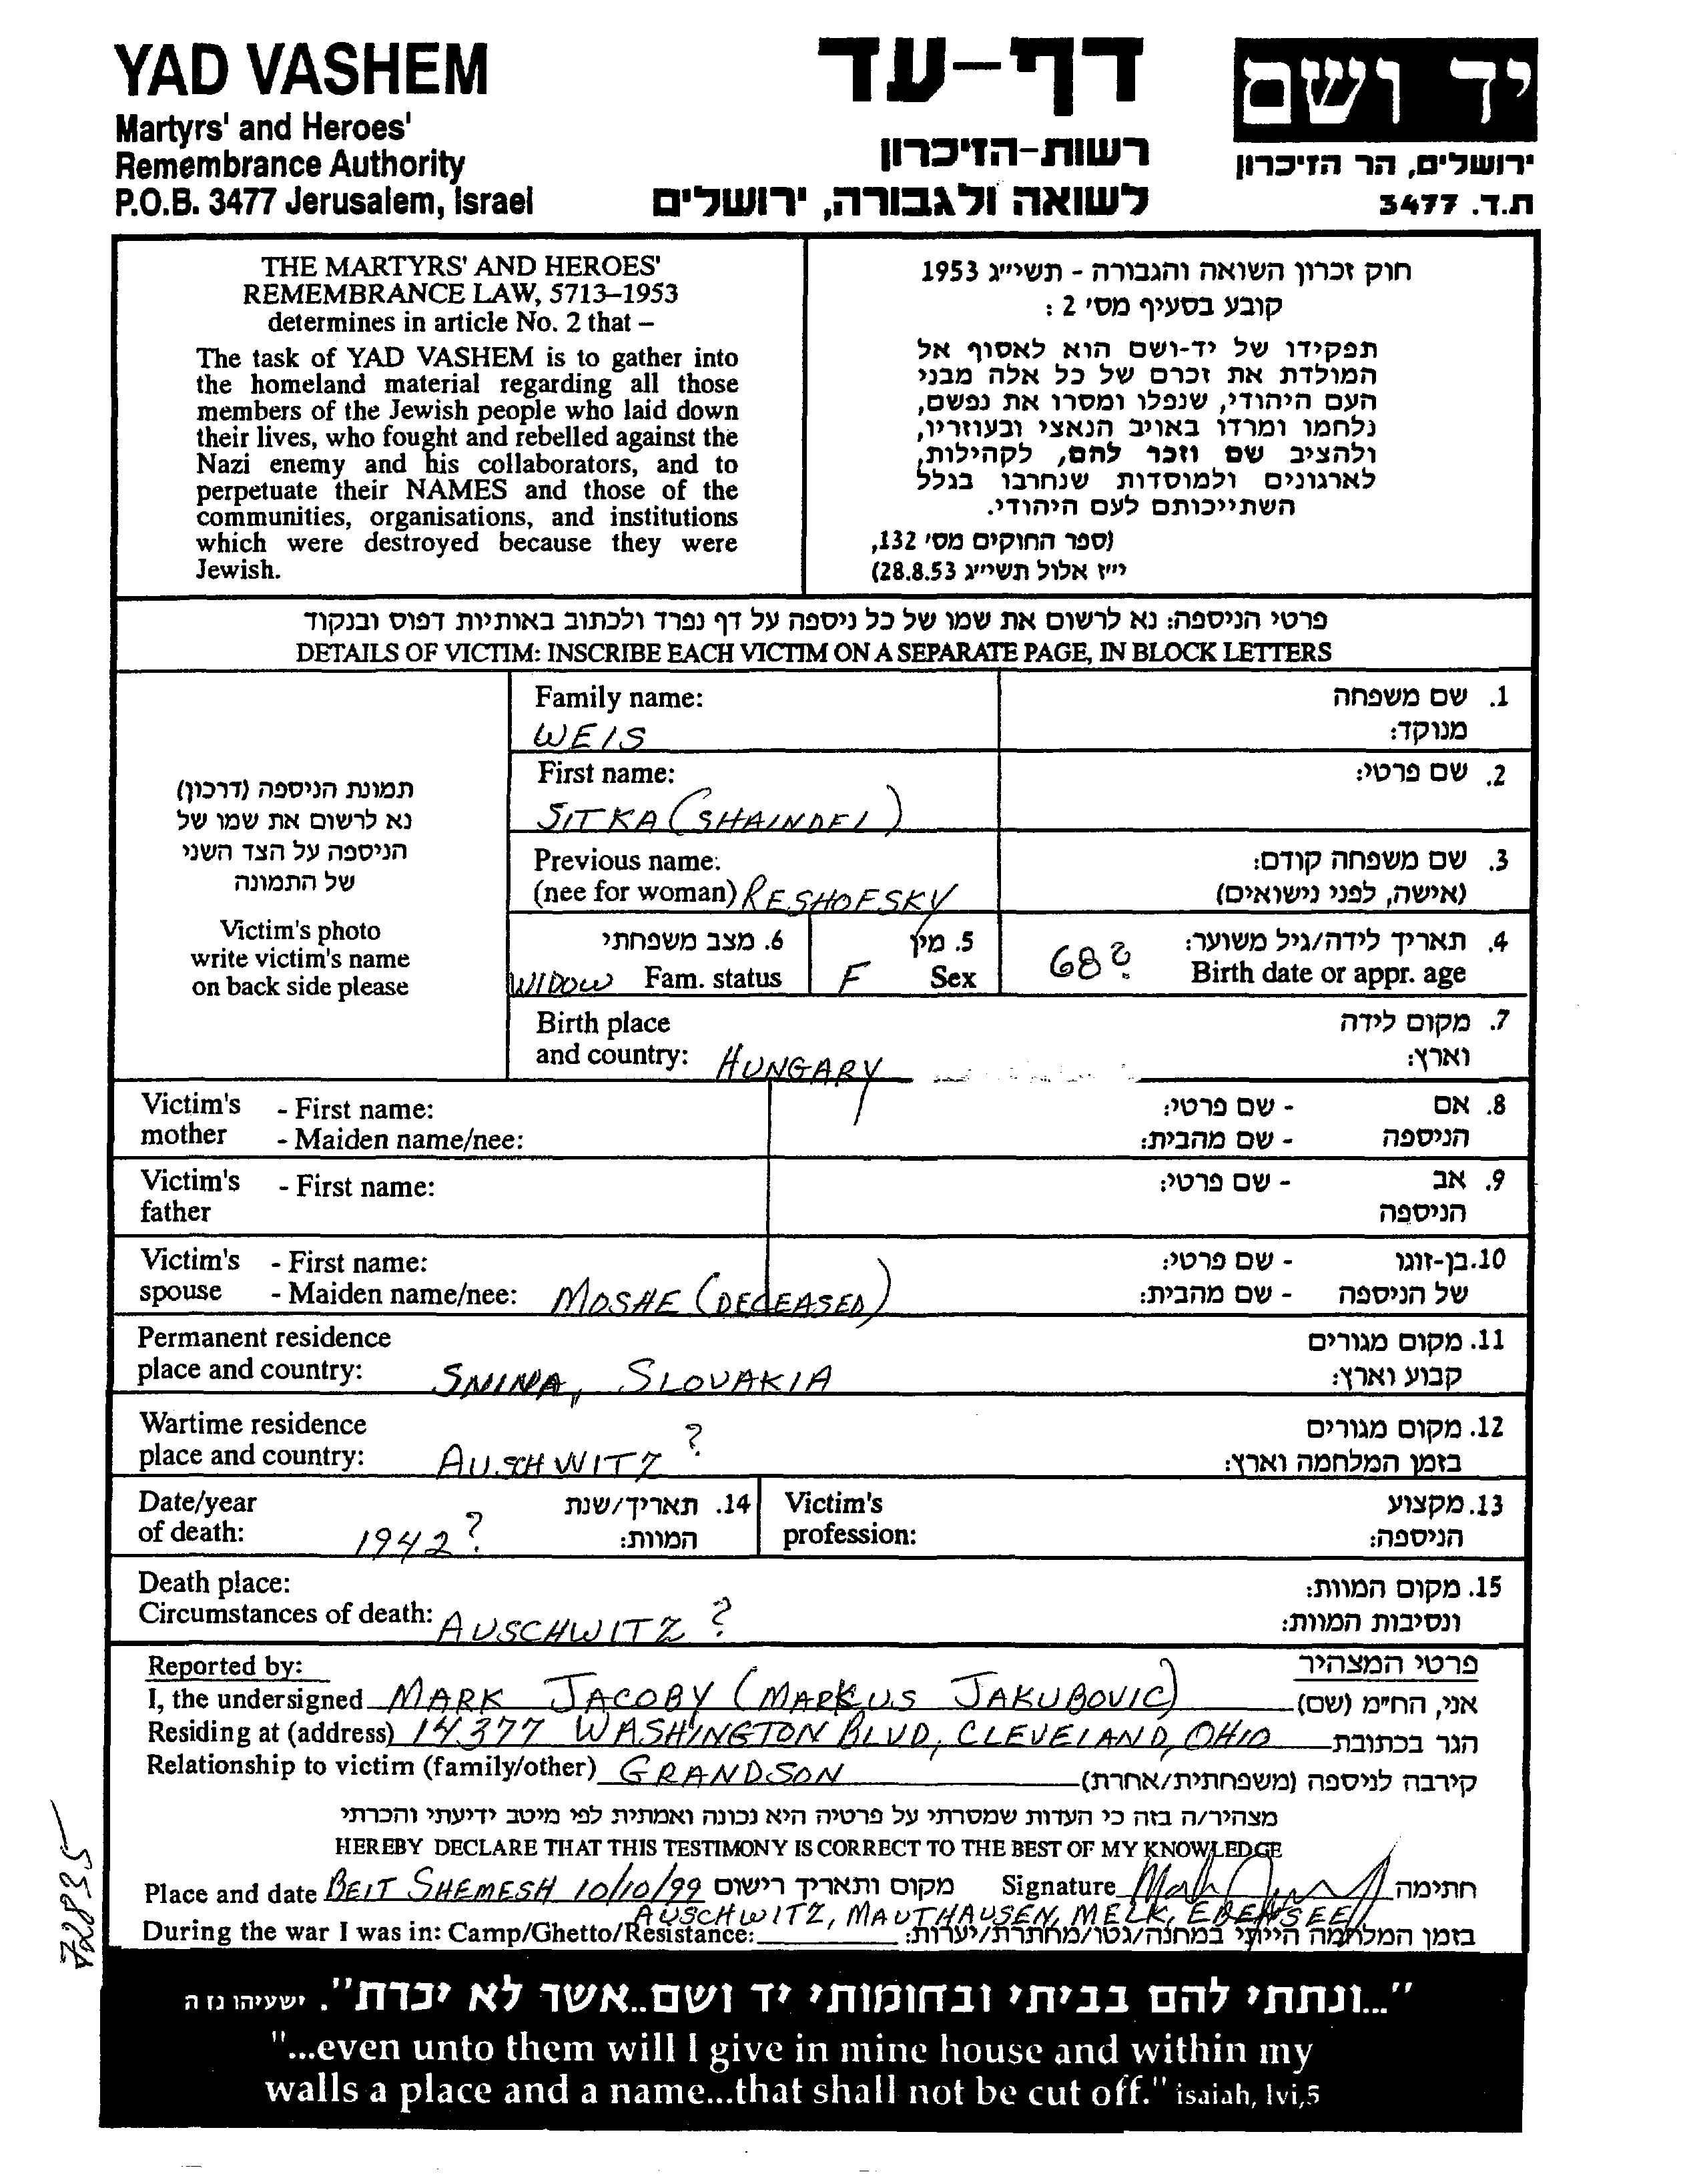 YAD VASHEM
Martyrs' and Heroes'
Remembrance Authority
P.O.B. 3477 Jerusalem, Israel
דף-עד
רשות-הזיכרון
לשואה ולגבורה, ירושלים
יד ושם
ירושלים, הר הזיכרון
ת.ד. 3477
THE MARTYRS' AND HEROES'
REMEMBRANCE LAW, 5713–1953
determines in article No. 2 that –
The task of YAD VASHEM is to gather into
the homeland material regarding all those
members of the Jewish people who laid down
their lives, who fought and rebelled against the
Nazi enemy and his collaborators, and to
perpetuate their NAMES and those of the
communities, organisations, and institutions
which were destroyed because they were
Jewish.
חוק זכרון השואה והגבורה - תשי״ג 1953
קובע בסעיף מס׳ 2 :
תפקידו של יד-ושם הוא לאסוף אל
המולדת את זכרם של כל אלה מבני
העם היהודי, שנפלו ומסרו את נפשם,
נלחמו ומרדו באויב הנאצי ובעוזריו,
ולהציב שם וזכר להם, לקהילות,
לארגונים ולמוסדות שנחרבו בגלל
השתייכותם לעם היהודי.
(ספר החוקים מס׳ 132,
י״ז אלול תשי״ג 28.8.53)
פרטי הניספה: נא לרשום את שמו של כל ניספה על דף נפרד ולכתוב באותיות דפוס ובנקוד
DETAILS OF VICTIM: INSCRIBE EACH VICTIM ON A SEPARATE PAGE, IN BLOCK LETTERS
תמונת הניספה (דרכון)
נא לרשום את שמו של
הניספה על הצד השני
של התמונה
Victim's photo
write victim's name
on back side please
Family name: 1. שם משפחה
WEIS מנוקד:
First name: 2. שם פרטי:
SITKA (SHAINDEL)
Previous name: 3. שם משפחה קודם:
(nee for woman) RESHOFSKY (אישה, לפני נישואים)
6. מצב משפחתי 5. מין 4. תאריך לידה/גיל משוער:
WIDOW Fam. status F Sex 68? Birth date or appr. age
Birth place 7. מקום לידה
and country: HUNGARY וארץ:
Victim's - First name: - שם פרטי: 8. אם
mother - Maiden name/nee: - שם מהבית: הניספה
Victim's - First name: - שם פרטי: 9. אב
father הניספה
Victim's - First name: - שם פרטי: 10. בן-זוגו
spouse - Maiden name/nee: MOSHE (DECEASED) - שם מהבית: של הניספה
Permanent residence 11. מקום מגורים
place and country: SNINA, SLOVAKIA קבוע וארץ:
Wartime residence 12. מקום מגורים
place and country: AUSCHWITZ ? בזמן המלחמה וארץ:
Date/year 14. תאריך/שנת Victim's 13. מקצוע
of death: 1942? המוות: profession: הניספה:
Death place: 15. מקום המוות:
Circumstances of death: AUSCHWITZ ? ונסיבות המוות:
Reported by: פרטי המצהיר
I, the undersigned MARK JACOBY (MARKUS JAKUBOVIC) אני, הח״מ (שם)
Residing at (address) 14377 WASHINGTON BLVD, CLEVELAND, OHIO הגר בכתובת
Relationship to victim (family/other) GRANDSON קירבה לניספה (משפחתית/אחרת)
מצהיר/ה בזה כי העדות שמסרתי על פרטיה היא נכונה ואמתית לפי מיטב ידיעתי והכרתי
HEREBY DECLARE THAT THIS TESTIMONY IS CORRECT TO THE BEST OF MY KNOWLEDGE
Place and date BEIT SHEMESH 10/10/99 מקום ותאריך רישום Signature חתימה
AUSCHWITZ, MAUTHAUSEN, MELK, EBENSEE
During the war I was in: Camp/Ghetto/Resistance: בזמן המלחמה הייתי במחנה/גטו/מחתרת/יערות:
72835
"...ונתתי להם בביתי ובחומותי יד ושם..אשר לא יכרת". ישעיהו נז ה
"...even unto them will I give in mine house and within my
walls a place and a name...that shall not be cut off." isaiah, lvi,5